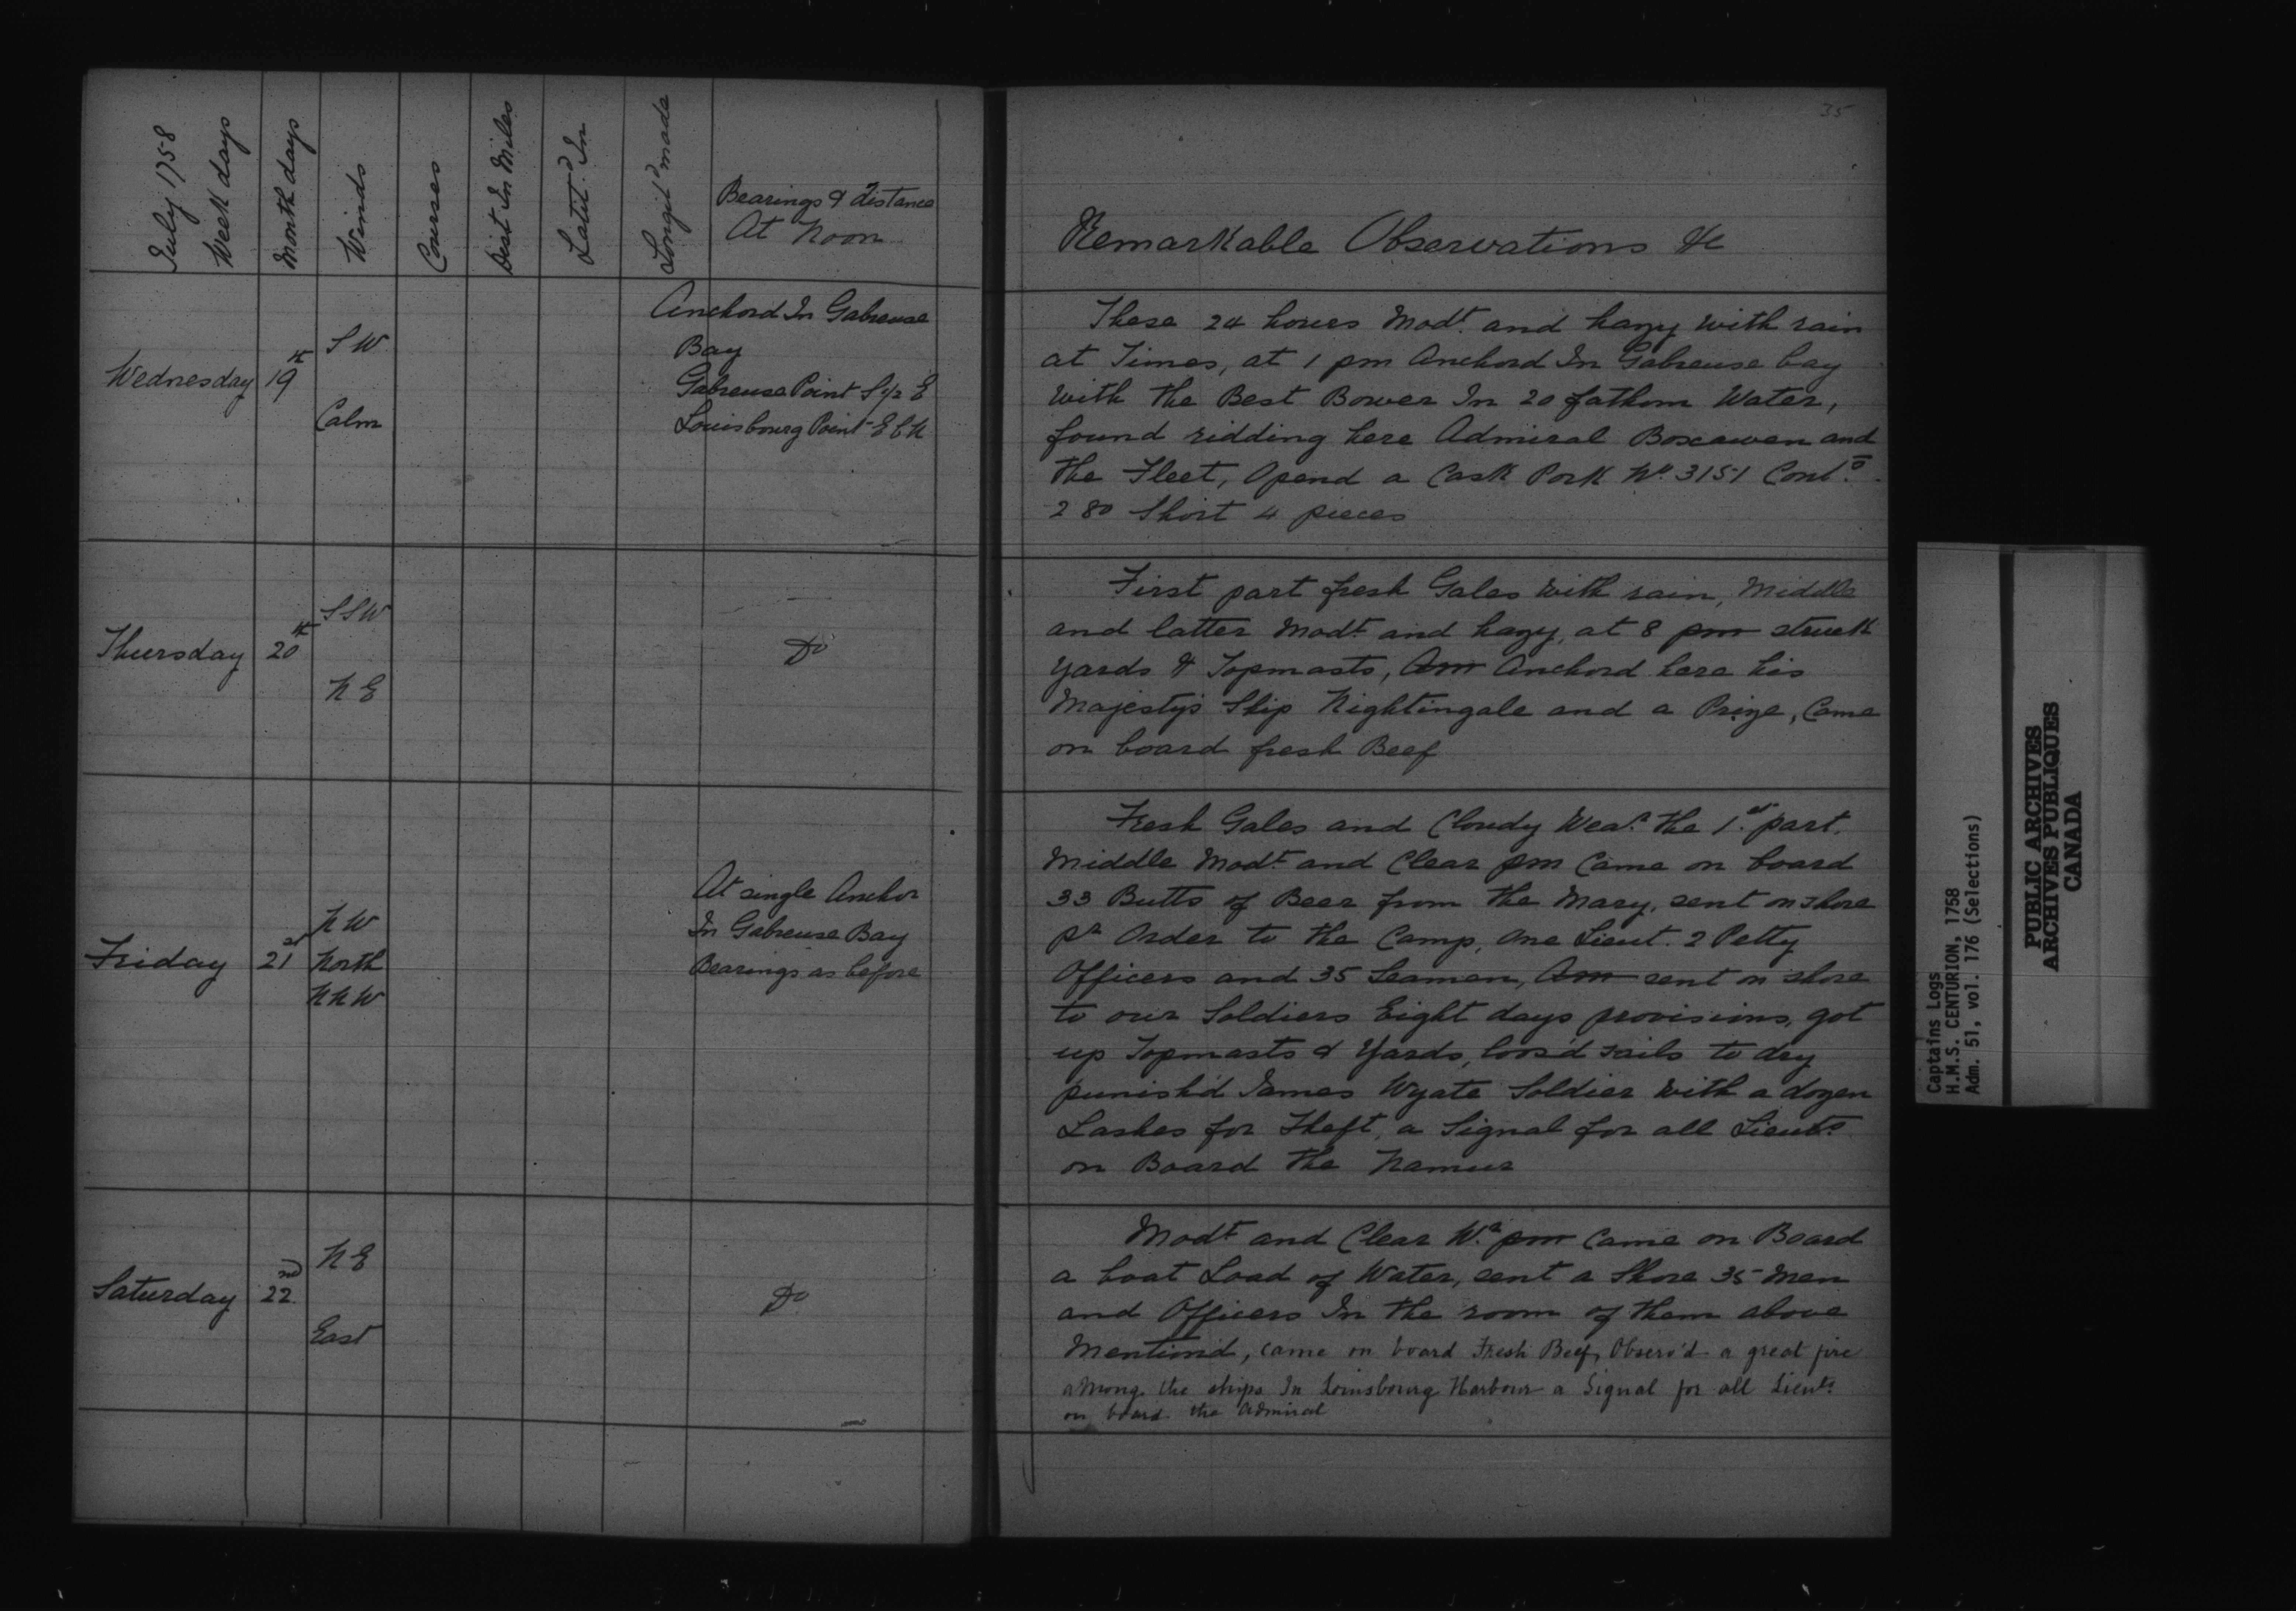 35
July 1758
Week days
Month days
Winds
Courses
Dist In Miles
Latit.d In
Longit.d made
Bearings & distance
At Noon
Remarkable Observations &c
Wednesday 19th
S W
Calm
Anchord In Gabreuse
Bay
Gabreuse Point S 1/2 E
Louisbourg Point E b N
These 24 hours Modt. and hazy with rain
at Times, at 1 pm Anchord In Gabreuse bay
with the Best Bower In 20 fathom Water,
found ridding here Admiral Boscawen and
the Fleet, Opend a Cask Pork No. 3151 Cont.
280 Short 4 pieces
Thursday 20th
S S W
N E
Do
First part fresh Gales with rain, Middle
and latter Modt and hazy, at 8 pm struck
Yards & Topmasts, Am Anchord here his
Majestys Ship Nightingale and a Prize, Came
on board fresh Beef
Friday 21st
N W
North
N N W
At single Anchor
In Gabreuse Bay
Bearings as before
Fresh Gales and Cloudy Wear. the 1st. part.
Middle Modt and Clear pm Came on board
33 Butts of Beer from the Mary, sent on shore
pr Order to the Camp, One Lieut. 2 Petty
Officers and 35 Seamen, Am sent on shore
to our Soldiers Eight days provisions, got
up Topmasts & Yards, loos'd sails to dry
punish'd James Wyate Soldier with a dozen
Lashes for Theft, a Signal for all Lieuts.
on Board the Namur
Saturday 22nd
N E
East
Do
Modt and Clear Wr. pm Came on Board
a boat Load of Water, sent a Shore 35 Men
and Officers In the room of them above
Mentiond, came on board Fresh Beef, Observ'd a great fire
among the ships In Louisbourg Harbour a Signal for all Lieuts.
on board the Admiral
Captains Logs
H.M.S. CENTURION, 1758
Adm. 51, vol. 176 (Selections)
PUBLIC ARCHIVES
ARCHIVES PUBLIQUES
CANADA